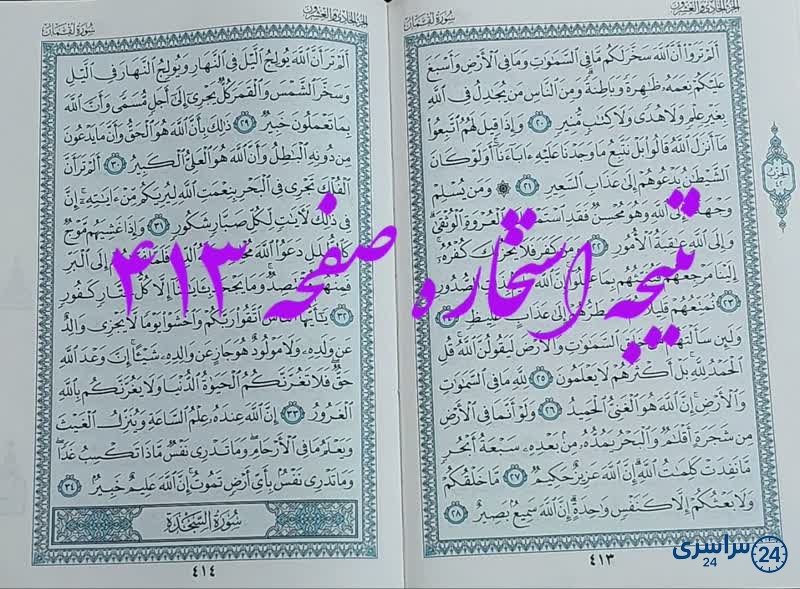 الجزء الحادي والعشرون
سورة لقمان
أَلَمْ تَرَوْا أَنَّ اللَّهَ سَخَّرَ لَكُم مَّا فِي السَّمَٰوَٰتِ وَمَا فِي الْأَرْضِ وَأَسْبَغَ
عَلَيْكُمْ نِعَمَهُ ظَٰهِرَةً وَبَاطِنَةً وَمِنَ النَّاسِ مَن يُجَٰدِلُ فِي اللَّهِ
بِغَيْرِ عِلْمٍ وَلَا هُدًى وَلَا كِتَٰبٍ مُّنِيرٍ ٢٠ وَإِذَا قِيلَ لَهُمُ اتَّبِعُوا
مَا أَنزَلَ اللَّهُ قَالُوا بَلْ نَتَّبِعُ مَا وَجَدْنَا عَلَيْهِ ءَابَاءَنَا أَوَلَوْ كَانَ
الشَّيْطَٰنُ يَدْعُوهُمْ إِلَىٰ عَذَابِ السَّعِيرِ ٢١ ۞ وَمَن يُسْلِمْ
وَجْهَهُ إِلَى اللَّهِ وَهُوَ مُحْسِنٌ فَقَدِ اسْتَمْسَكَ بِالْعُرْوَةِ الْوُثْقَىٰ
وَإِلَى اللَّهِ عَٰقِبَةُ الْأُمُورِ ٢٢ وَمَن كَفَرَ فَلَا يَحْزُنكَ كُفْرُهُ
إِلَيْنَا مَرْجِعُهُمْ فَنُنَبِّئُهُم بِمَا عَمِلُوا إِنَّ اللَّهَ عَلِيمٌ بِذَاتِ الصُّدُورِ
٢٣ نُمَتِّعُهُمْ قَلِيلًا ثُمَّ نَضْطَرُّهُمْ إِلَىٰ عَذَابٍ غَلِيظٍ ٢٤
وَلَئِن سَأَلْتَهُم مَّنْ خَلَقَ السَّمَٰوَٰتِ وَالْأَرْضَ لَيَقُولُنَّ اللَّهُ قُلِ
الْحَمْدُ لِلَّهِ بَلْ أَكْثَرُهُمْ لَا يَعْلَمُونَ ٢٥ لِلَّهِ مَا فِي السَّمَٰوَٰتِ
وَالْأَرْضِ إِنَّ اللَّهَ هُوَ الْغَنِيُّ الْحَمِيدُ ٢٦ وَلَوْ أَنَّمَا فِي الْأَرْضِ
مِن شَجَرَةٍ أَقْلَٰمٌ وَالْبَحْرُ يَمُدُّهُ مِن بَعْدِهِ سَبْعَةُ أَبْحُرٍ
مَّا نَفِدَتْ كَلِمَٰتُ اللَّهِ إِنَّ اللَّهَ عَزِيزٌ حَكِيمٌ ٢٧ مَّا خَلْقُكُمْ
وَلَا بَعْثُكُمْ إِلَّا كَنَفْسٍ وَٰحِدَةٍ إِنَّ اللَّهَ سَمِيعٌ بَصِيرٌ ٢٨
٤١٣
الحزب
٤٢
الجزء الحادي والعشرون
سورة لقمان
أَلَمْ تَرَ أَنَّ اللَّهَ يُولِجُ اللَّيْلَ فِي النَّهَارِ وَيُولِجُ النَّهَارَ فِي اللَّيْلِ
وَسَخَّرَ الشَّمْسَ وَالْقَمَرَ كُلٌّ يَجْرِي إِلَىٰ أَجَلٍ مُّسَمًّى وَأَنَّ اللَّهَ
بِمَا تَعْمَلُونَ خَبِيرٌ ٢٩ ذَٰلِكَ بِأَنَّ اللَّهَ هُوَ الْحَقُّ وَأَنَّ مَا يَدْعُونَ
مِن دُونِهِ الْبَٰطِلُ وَأَنَّ اللَّهَ هُوَ الْعَلِيُّ الْكَبِيرُ ٣٠ أَلَمْ تَرَ أَنَّ
الْفُلْكَ تَجْرِي فِي الْبَحْرِ بِنِعْمَتِ اللَّهِ لِيُرِيَكُم مِّنْ ءَايَٰتِهِ إِنَّ
فِي ذَٰلِكَ لَءَايَٰتٍ لِّكُلِّ صَبَّارٍ شَكُورٍ ٣١ وَإِذَا غَشِيَهُم مَّوْجٌ
كَالظُّلَلِ دَعَوُا اللَّهَ مُخْلِصِينَ لَهُ الدِّينَ فَلَمَّا نَجَّىٰهُمْ إِلَى الْبَرِّ
فَمِنْهُم مُّقْتَصِدٌ وَمَا يَجْحَدُ بِءَايَٰتِنَا إِلَّا كُلُّ خَتَّارٍ كَفُورٍ
٣٢ يَٰأَيُّهَا النَّاسُ اتَّقُوا رَبَّكُمْ وَاخْشَوْا يَوْمًا لَّا يَجْزِي وَالِدٌ
عَن وَلَدِهِ وَلَا مَوْلُودٌ هُوَ جَازٍ عَن وَالِدِهِ شَيْئًا إِنَّ وَعْدَ اللَّهِ
حَقٌّ فَلَا تَغُرَّنَّكُمُ الْحَيَوٰةُ الدُّنْيَا وَلَا يَغُرَّنَّكُم بِاللَّهِ
الْغَرُورُ ٣٣ إِنَّ اللَّهَ عِندَهُ عِلْمُ السَّاعَةِ وَيُنَزِّلُ الْغَيْثَ
وَيَعْلَمُ مَا فِي الْأَرْحَامِ وَمَا تَدْرِي نَفْسٌ مَّاذَا تَكْسِبُ غَدًا
وَمَا تَدْرِي نَفْسٌ بِأَيِّ أَرْضٍ تَمُوتُ إِنَّ اللَّهَ عَلِيمٌ خَبِيرٌ ٣٤
سُورَةُ السَّجْدَةِ
٤١٤
نتیجه استخاره صفحه ۴۱۳
سراسری
24
24